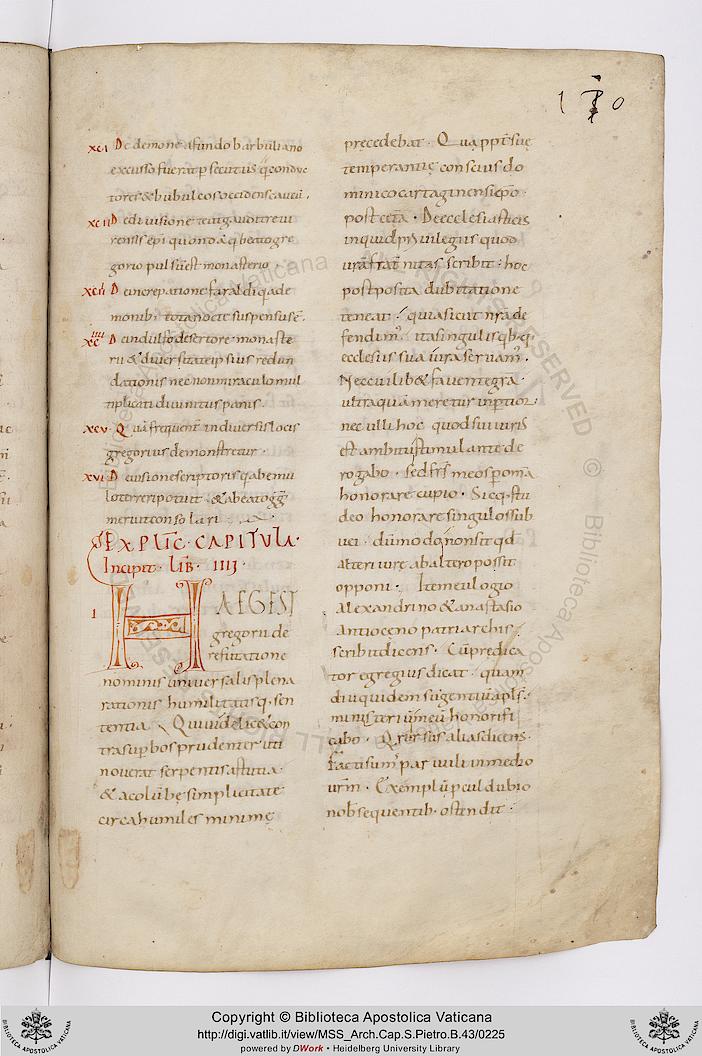 xci De demone a fundo barbuliano
excusso fuerat persecutus
tores & bubulcos occidens
xcii De divisione
rensis epi quondā q beato gre
gorio pulsu est monasterio
xciii De increpatione
monibꝰ tota nocte suspensus ē
xciiii De indulto desertore monaste
rii & diversitate ipsius redun
dationis nec non miraculo mul
tiplicati divinitus panis
xcv Quā frequent in diversis locis
gregorius demonstretur
xvi De visione scriptoris q abemu
lo terreri potuit & a beato gg
meruit consolari
EXPLIC CAPITULA
Incipit Lib IIII
I HAEC EST
gregorii de
refutatione
nominis universalis plena
rationis humilitatisq sen
tentia Qui videlic& con
tra superbos prudenter uti
noverat serpentis astutia
& a colūbe simplicitate
circa humiles minime
precedebat Qua ppt suę
temperantię conscius do
minico cartaginensi epo
post cetā De eclesiasticis
inquid privilegiis quod
vrā fraternitas scribit hoc
postposita dubitatione
teneat quia sicut nrā de
fendimꝰ ita singulis
ecclesiis sua iura servam
Nec cuilib& favente gra
ultra quā meretur inptior
nec ulli hoc quod sui iuris
est ambitu stimulante de
rogabo sed frs meos p omā
honorare cupio Sicq stu
deo honorare singulos sub
vei dūmodo non sit qd
alteri iure ab altero possit
opponi Item eulogio
alexandrino & anastasio
antioceno patriarchis
scribit dicens Cū predica
tor egregius dicat quam
diu quidem sū gentiū apls
ministeriū meū honorifi
cabo Q rursus alias dicens
facti sum parvuli in medio
vrm Exemplū pcul dubio
nob sequentib ostendit
Copyright © Biblioteca Apostolica Vaticana
http://digi.vatlib.it/view/MSS_Arch.Cap.S.Pietro.B.43/0225
powered by DWork • Heidelberg University Library